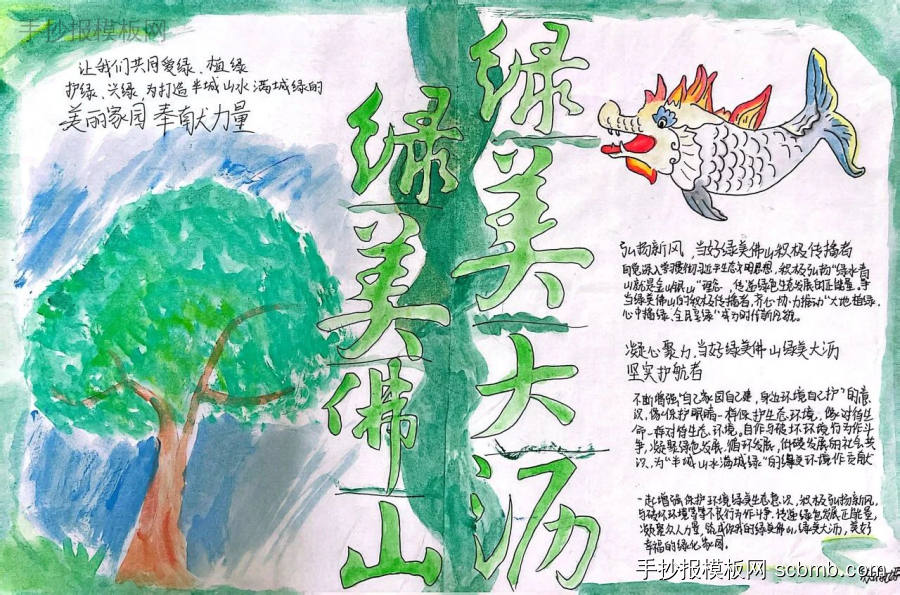 手抄报模板网
让我们共同爱绿、植绿
护绿、兴绿,为打造半城山水满城绿的
美丽家园奉献力量
绿美佛山
绿美大沥
弘扬新风,当好绿美佛山积极传播者
自觉深入学习贯彻习近平生态文明思想,积极弘扬“绿水青
山就是金山银山”理念,传递绿色生态发展的正能量。争
当绿美佛山的积极传播者,齐心协力推动“大地植绿、
心中播绿、全民享绿”成为时代新风貌。
凝心聚力,当好绿美佛山绿美大沥
坚实护航者
不断增强“自己家园自己建,身边环境自己护”的意
识,像保护眼睛一样保护生态环境,像对待生
命一样对待生态环境,自作与破坏环境行为作斗
争,凝聚绿色发展、循环发展、低碳发展的社会共
识,为“半城山水满城绿”的绿美环境作贡献
一起增强保护环境绿美生态意识,积极弘扬新风,
与破坏环境等不良行为作斗争,传递绿色发展正能量,
凝聚众人力量,的绿美佛山,绿美大沥,美好
幸福的绿化家园。
手抄报模板网 scbmb.com